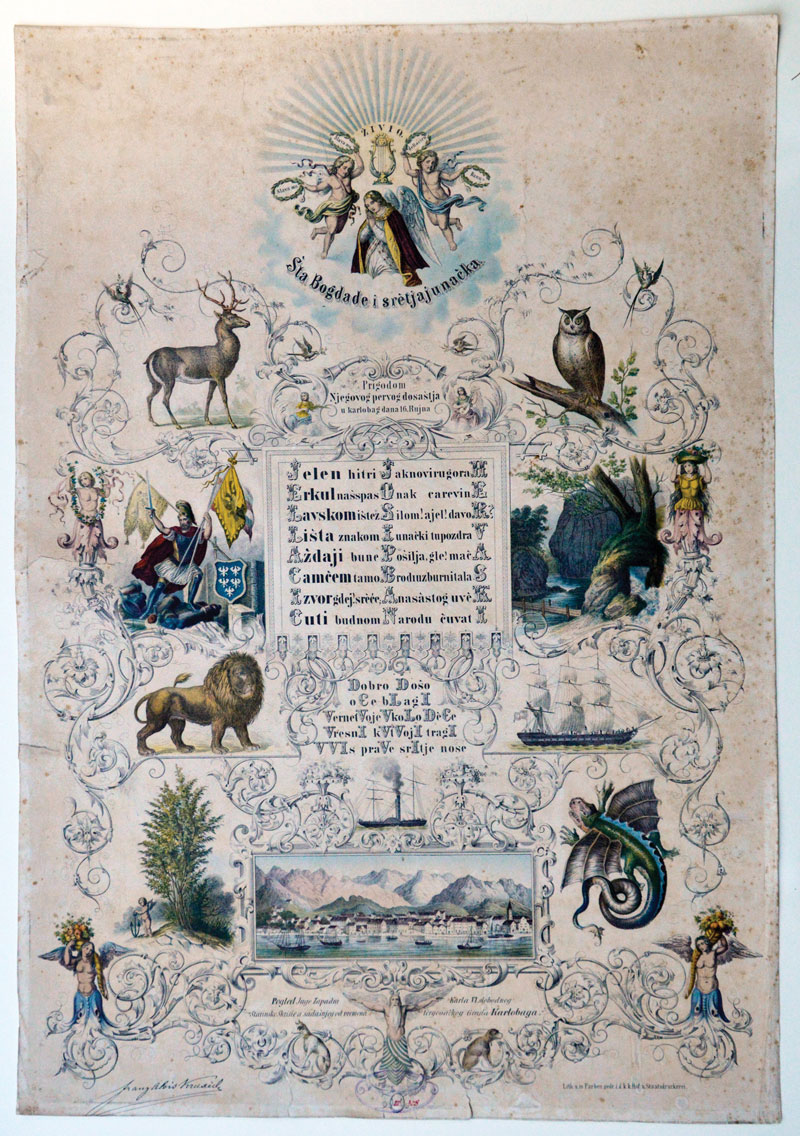 ŽIVIO.
Šta Bogdade i srètjajunačka.
Prigodom
Njegovog pervog došaštja
u karlobag dana 16. Rujna
Jelen hitri Jaknovirugora H
Erkul našspas Onak carevin E
Lavskom ištež Silom! ajel! davo R?
Lišta znakom Iunački tupozdra V
Aždaji bune Pošilja, gle! mač A
Camčem tamo, Broduzburnitala S
Izvor gdej! srěće, Anasàstog uvě K
Cuti budnom Narodu čuvat I
Dobro Došo
oCe bLagI
VerneтVoje VkoLo DěCe
VresnI kVTVojI tragI
VVIs praVe srItje nose
Pogled Jugo Zapadni
Karla VI. slobodnog
tergovačkog Karlobaga.
Lith. u. in Farben gedr. i. d. k. k. Hof u. Staatsdruckerei.